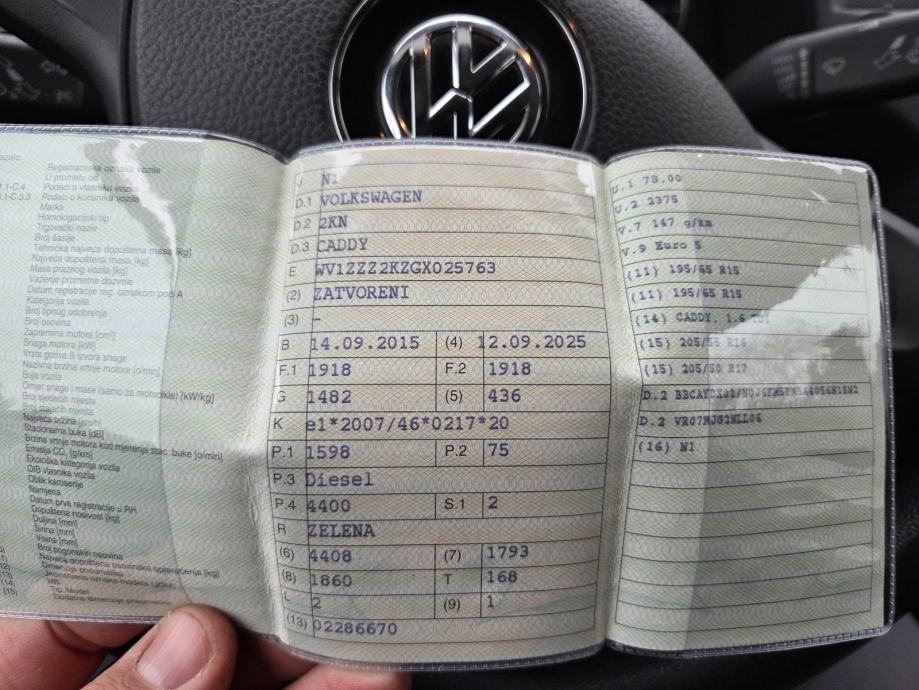 Registracijska oznaka vozila
U prometu od
1.1-C.4 Podaci o vlasniku vozila
1.1-C.3.3 Podaci o korisniku vozila
Marka
Homologacijski tip
Trgovački naziv
Broj šasije
Tehnička najveća dopuštena masa [kg]
Najveća dopuštena masa [kg]
Masa praznog vozila [kg]
Važenje prometne dozvole
Datum registracije reg. oznakom pod A
Kategorija vozila
Broj tipnog odobrenja
Broj osovina
Zapremina motora [cm³]
Snaga motora [kW]
Vrsta goriva ili izvora snage
Nazivna brzina vrtnje motora [o/min]
Boja vozila
Omjer snage i mase (samo za motocikle) [kW/kg]
Broj sjedećih mjesta
Broj stajaćih mjesta
Najveća brzina [km/h]
Stacionarna buka [dB]
Brzina vrtnje motora kod mjerenja stac. buke [o/min]
Emisija CO₂ [g/km]
Ekološka kategorija vozila
OIB vlasnika vozila
Oblik karoserije
Namjena
Datum prve registracije u RH
Dopuštena nosivost [kg]
Duljina [mm]
Širina [mm]
Visina [mm]
Broj pogonskih osovina
Najveća dopuštena osovinska opterećenja [kg]
Dimenzije pneumatika
MB
Tip, Model
J N1
D.1 VOLKSWAGEN
D.2 2KN
D.3 CADDY
E WV1ZZZ2KZGX025763
(2) ZATVORENI
(3) -
B 14.09.2015 (4) 12.09.2025
F.1 1918 F.2 1918
G 1482 (5) 436
K e1*2007/46*0217*20
P.1 1598 P.2 75
P.3 Diesel
P.4 4400 S.1 2
R ZELENA
(6) 4408 (7) 1793
(8) 1860 T 168
L 2 (9) 1
(13) 02286670
U.1 78.00
U.2 2375
V.7 147 g/km
V.9 Euro 5
(11) 195/65 R15
(11) 195/65 R15
(14) CADDY, 1.6 TDI
(15) 205/55 R16
(15) 205/50 R17
D.2
D.2
(16) N1